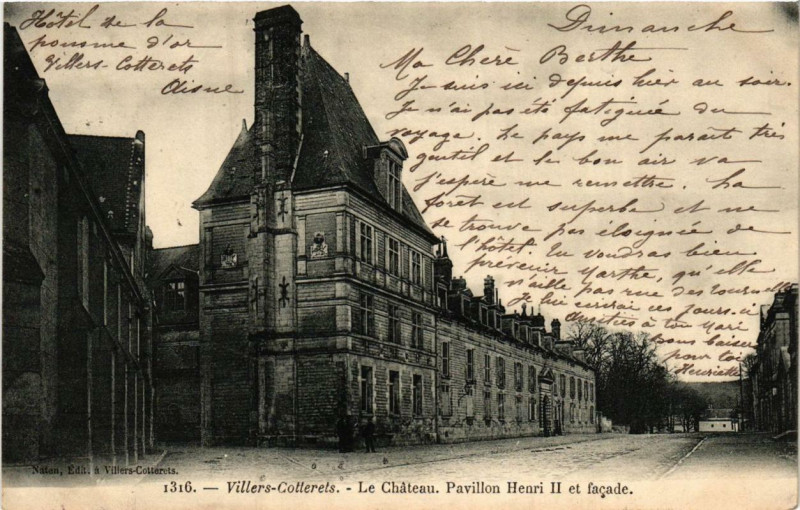 Hôtel de la
pomme d'or
Villers-Cotterets
Aisne
Dimanche
Ma Chère Berthe
Je suis ici depuis hier au soir.
Je n'ai pas été fatiguée du
voyage. Le pays me parait très
gentil et le bon air va
j'espère me remettre. La
forêt est superbe et ne
se trouve pas éloignée de
l'hôtel. Tu voudras bien
prévenir Marthe, qu'elle
n'aille pas rue des Tournelles
Je lui écrirai ces jours-ci
Amitiés à ton Mari
bons baisers
pour toi
Henriette
Natan, Édit. à Villers-Cotterets.
1316. — Villers-Cotterets. - Le Château. Pavillon Henri II et façade.